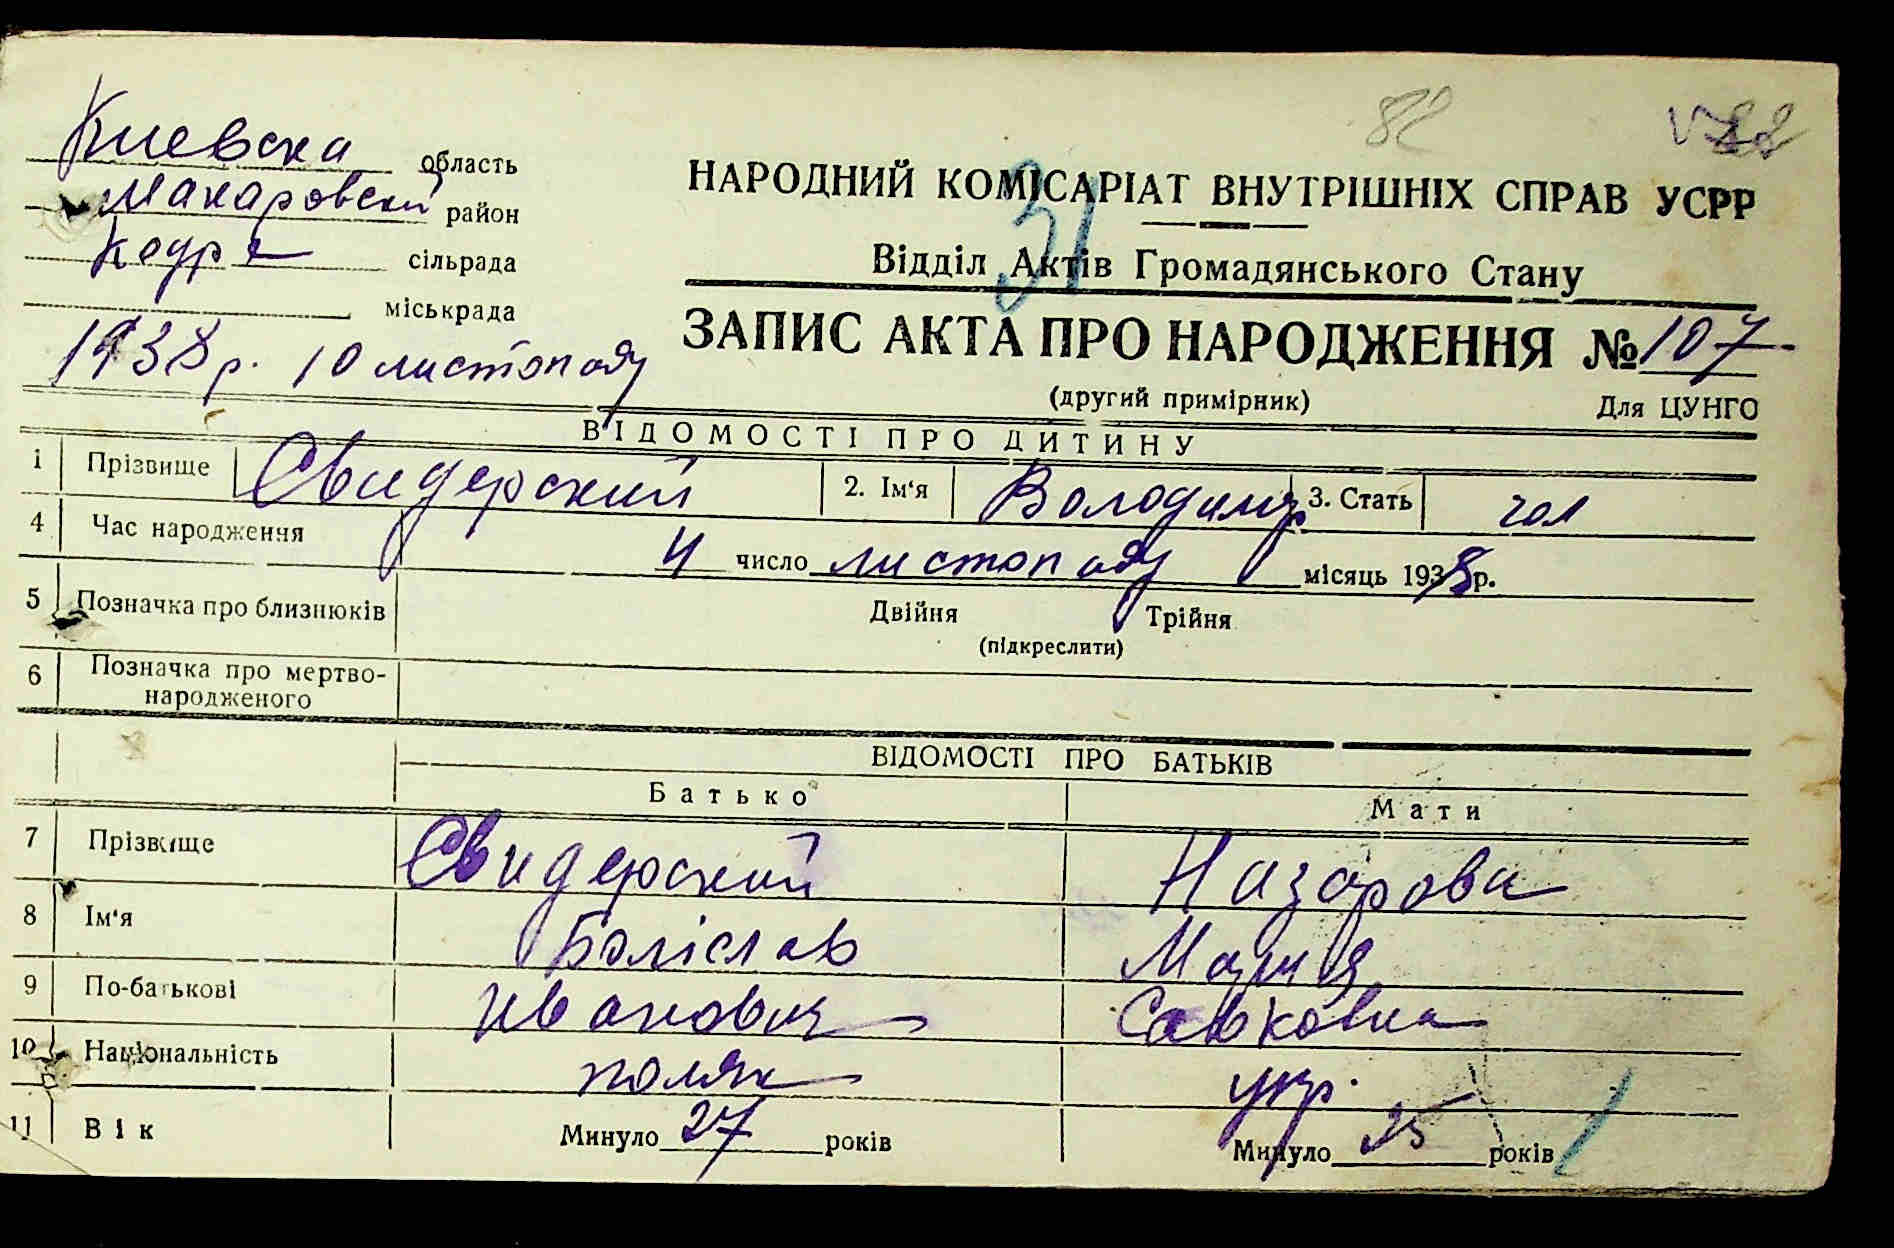 82
Киевска область
Макаровский район
Кодра сільрада
міськрада
1938 р. 10 листопаду
НАРОДНИЙ КОМІСАРІАТ ВНУТРІШНІХ СПРАВ УСРР
31
Відділ Актів Громадянського Стану
ЗАПИС АКТА ПРО НАРОДЖЕННЯ № 107
(другий примірник) Для ЦУНГО
ВІДОМОСТІ ПРО ДИТИНУ
1 Прізвище Свидерский 2. Ім'я Володимир 3. Стать чол
4 Час народження 4 число листопаду місяць 1938 р.
5 Позначка про близнюків Двійня Трійня
(підкреслити)
6 Позначка про мертво-
народженого
ВІДОМОСТІ ПРО БАТЬКІВ
Батько Мати
7 Прізвище Свидерский Назарова
8 Ім'я Боліслав Мария
9 По-батькові Иванович Савковна
10 Національність поляк укр.
11 Вік Минуло 27 років Минуло 25 років